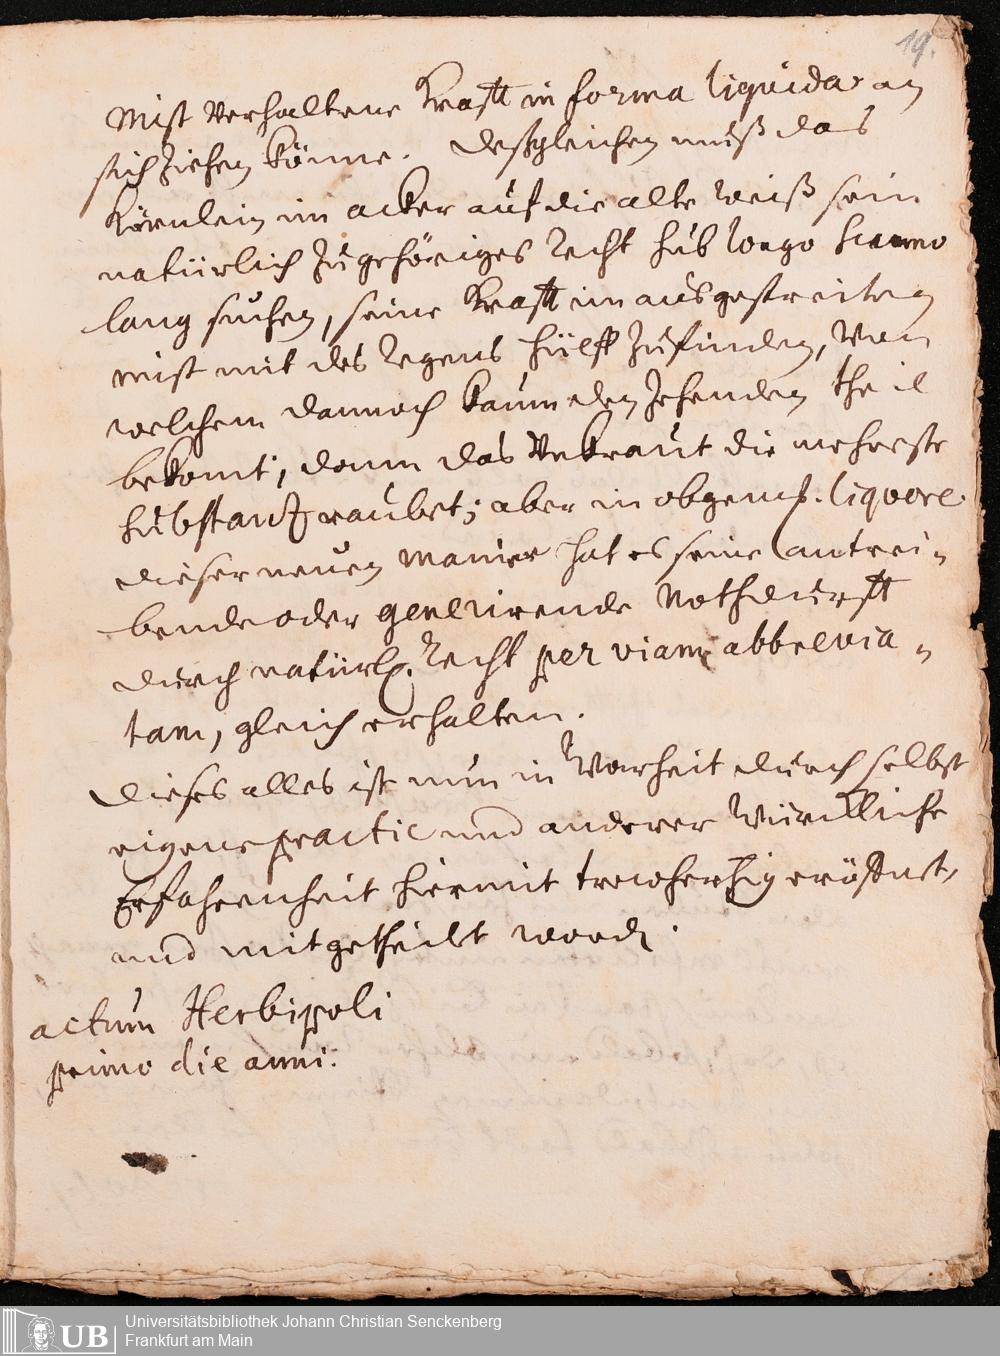 19.
Mist verhaltene Krafft in forma liquida an
sich ziehen könne. Deßgleichen muß das
Körnlein im acker auf die alte weiß sein
natürlich zugehöriges recht sub longo
lang suchen, seine Krafft im ausgestreiten
mist mit des regens hülff zufinden, von
welchem dannoch kaum den zehenden theil
bekomt, dann das Unkraut die mehreste
substantz raubet; aber in obgemß. liquore
dieser neuen manier hat es seine antrei-
bende oder Nothdurfft
durch natürl. recht per viam abbrevia-
tam, gleich erhalten.
Dieses alles ist nun in Warheit durch selbst
eigene practic und anderer würckliche
Erfahrenheit hiermit trewhertzig eröffnet,
und mitgetheilt word.
actum Herbipoli
primo die anni:
UB
Universitätsbibliothek Johann Christian Senckenberg
Frankfurt am Main